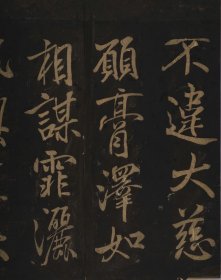 不違大慈
願膏澤如
相謀霏灑